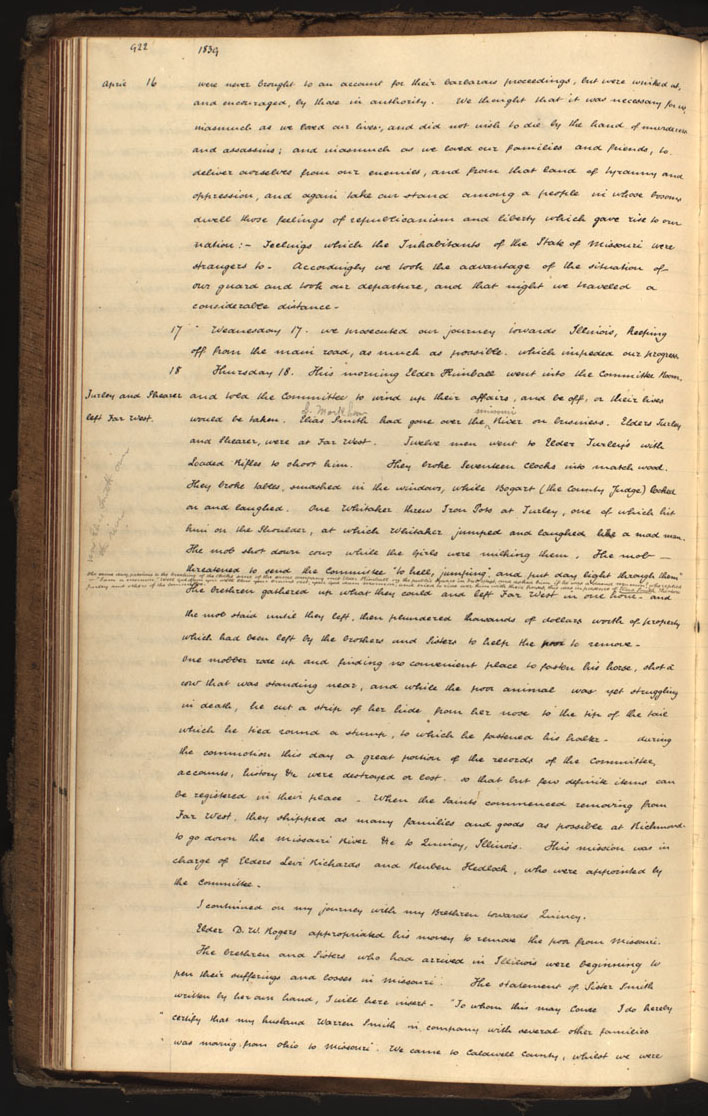 922 1839
April 16 were never brought to an account for their barbarous proceedings, but were winked at,
and encouraged, by those in authority. We thought that it was necessary for us,
inasmuch as we loved our lives, and did not wish to die by the hand of murderers
and assassins; and inasmuch as we loved our families and friends, to
deliver ourselves from our enemies, and from that land of tyranny and
oppression, and again take our stand among a people in whose bosoms
dwell those feelings of republicanism and liberty which gave rise to our
nation:- Feelings which the Inhabitants of the State of Missouri were
strangers to- Accordingly we took the advantage of the situation of
our guard and took our departure, and that night we traveled a
considerable distance-
17 Wednesday 17. we prosecuted our journey towards Illinois, keeping
off from the main road, as much as possible. which impeded our progress.
18 Thursday 18. This morning Elder Kimball went into the Committee Room,
Turley and Shearer and told the Committee to wind up their affairs, and be off, or their lives
S. Markham missouri
left Far West. would be taken. Elias Smith had gone over the River on business. Elders Turley
and Shearer, were at Far West. Twelve men went to Elder Turley's with
Loaded Rifles to shoot him. They broke Seventeen clocks into match wood.
They broke tables, smashed in the windows, while Bogart (the County Judge) looked
on and laughed. One Whitaker threw Iron Pots at Turley, one of which hit
him on the Shoulder, at which Whitaker jumped and laughed like a mad man.
The mob shot down cows while the Girls were milking them. The mob-
threatened to send the Committee "to hell, jumping," and "put day light through them"
The same day, previous to the breaking of the clocks
The brethren gathered up what they could and left Far West in one hour- and
the mob staid until they left, then plundered thousands of dollars worth of property
which had been left by the brothers and Sisters to help the poor to remove-
One mobber rode up and finding no convenient place to fasten his horse, shot a
cow that was standing near, and while the poor animal was yet struggling
in death, he cut a strip of her hide from her nose to the tip of the tail
which he tied round a stump, to which he fastened his halter- during
the commotion this day a great portion of the records of the Committee,
accounts, history &c were destroyed or lost. so that but few definite items can
be registered in their place- When the Saints commenced removing from
Far West, they shipped as many families and goods as possible at Richmond
to go down the Missouri River &c to Quincy, Illinois. This mission was in
charge of Elders Levi Richards and Reuben Hedlock, who were appointed by
the Committee-
I continued on my journey with my Brethren towards Quincy.
Elder D. W. Rogers appropriated his money to remove the poor from Missouri.
The brethren and Sisters who had arrived in Illinois were beginning to
pen their sufferings and losses in Missouri. The statement of Sister Smith
written by her own hand, I will here insert- "To whom this may Come I do hereby
" certify that my husband Warren Smith in company with several other families
was moving from Ohio to Missouri. We came to Caldwell County, whilst we were